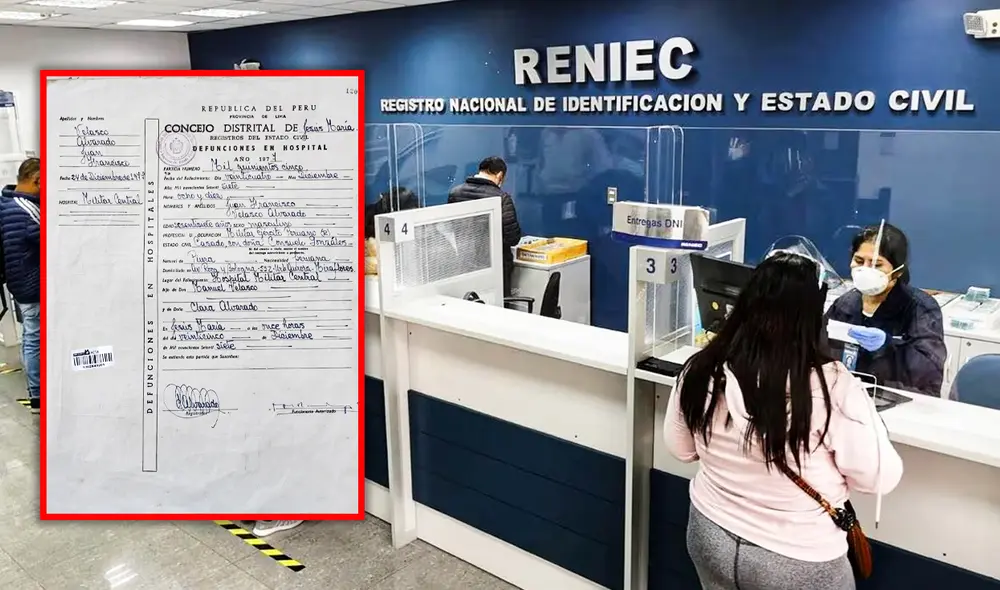 RENIEC
REGISTRO NACIONAL DE IDENTIFICACION Y ESTADO CIVIL
Entregas DNI
4 4
3 3
REPUBLICA DEL PERU
PROVINCIA DE LIMA
CONCEJO DISTRITAL DE Jesús María
REGISTROS DEL ESTADO CIVIL
DEFUNCIONES EN HOSPITAL
AÑO 1977
Apellidos y Nombres
Velasco
Alvarado
Juan
Francisco
Fecha 24 de Diciembre de 1977
HOSPITAL Militar Central
DEFUNCIONES EN HOSPITALES
PARTIDA NUMERO Mil quinientos cinco
Fecha del Fallecimiento: Día veinticuatro Mes Diciembre
Año Mil novecientos setenti siete
Hora: ocho y diez
NOMBRES Y APELLIDOS Juan Francisco
Velasco Alvarado
años sexo masculino
PROFESION U OCUPACION Militar
ESTADO CIVIL Casado con doña Consuelo Gonzáles
Natural de Piura Nacionalidad peruana
Domiciliado Miraflores
Lugar del Fallecimiento Hospital Militar Central
Hijo de Don Manuel Velasco
y de Doña Clara Alvarado
En Jesús María a las once horas
del día veinticinco de Diciembre
de Mil novecientos setenti siete
Se extiende esta partida que Suscriben:
Alvarado
Registrador
Funcionario Autorizado